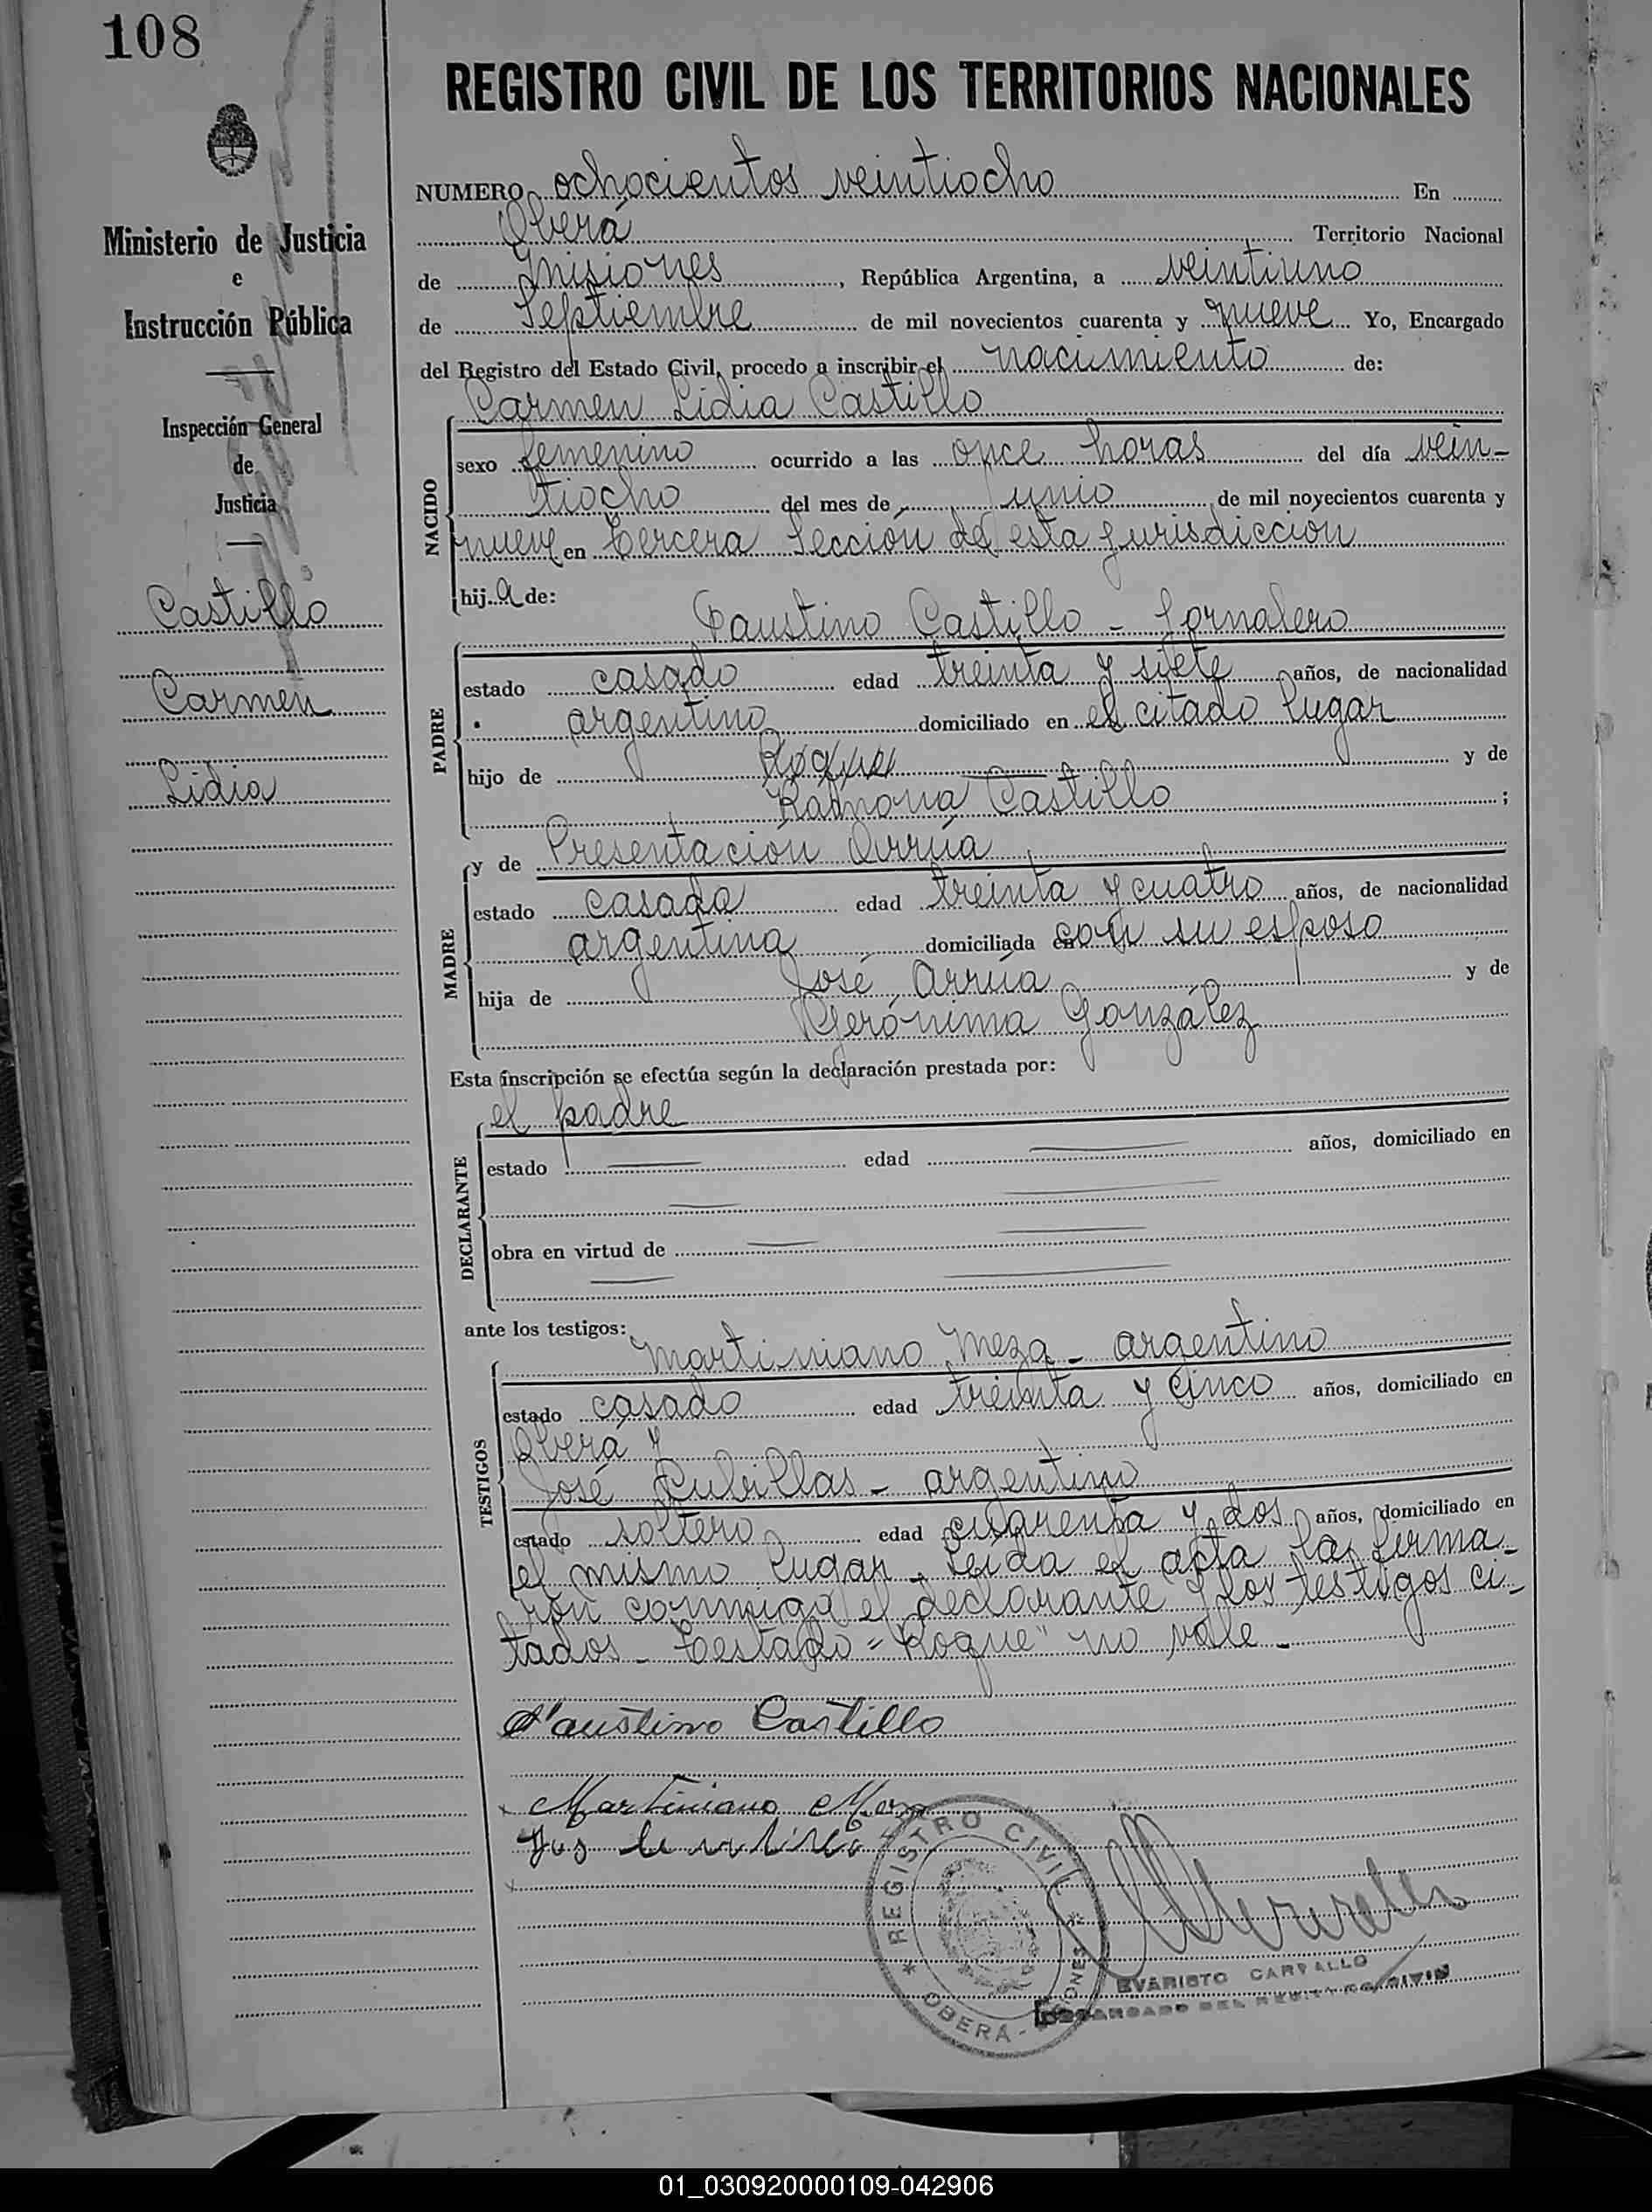 108
REGISTRO CIVIL DE LOS TERRITORIOS NACIONALES
Ministerio de Justicia
e
Instrucción Pública
Inspección General
de
Justicia
Castillo
Carmen
Lidia
NUMERO ochocientos veintiocho En
Oberá Territorio Nacional
de Misiones, República Argentina, a veintiuno
de Septiembre de mil novecientos cuarenta y nueve Yo, Encargado
del Registro del Estado Civil, procedo a inscribir el nacimiento de:
Carmen Lidia Castillo
NACIDO
sexo femenino ocurrido a las once horas del día vein-
tiocho del mes de junio de mil novecientos cuarenta y
nueve en tercera Sección de esta jurisdicción
hija de:
Faustino Castillo - Jornalero
PADRE
estado casado edad treinta y siete años, de nacionalidad
argentino domiciliado en el citado lugar
hijo de Roque y de
Ramona Castillo ;
MADRE
y de Presentación Arrúa
estado casada edad treinta y cuatro años, de nacionalidad
argentina domiciliada en con su esposo
hija de José Arrúa y de
Gerónima González
Esta inscripción se efectúa según la declaración prestada por:
el padre
DECLARANTE
estado edad años, domiciliado en
obra en virtud de
ante los testigos:
Martiniano Meza - argentino
TESTIGOS
estado casado edad treinta y cinco años, domiciliado en
Oberá y
José Cubillas - argentino
estado soltero edad cuarenta y dos años, domiciliado en
el mismo lugar. Leída el acta la firma-
ron conmigo el declarante y los testigos ci-
tados - Testado "Roque" no vale -
Faustino Castillo
Martiniano Meza
REGISTRO CIVIL
OBERÁ - MISIONES
EVARISTO CARVALLO
ENCARGADO DEL REGISTRO CIVIL
01_030920000109-042906